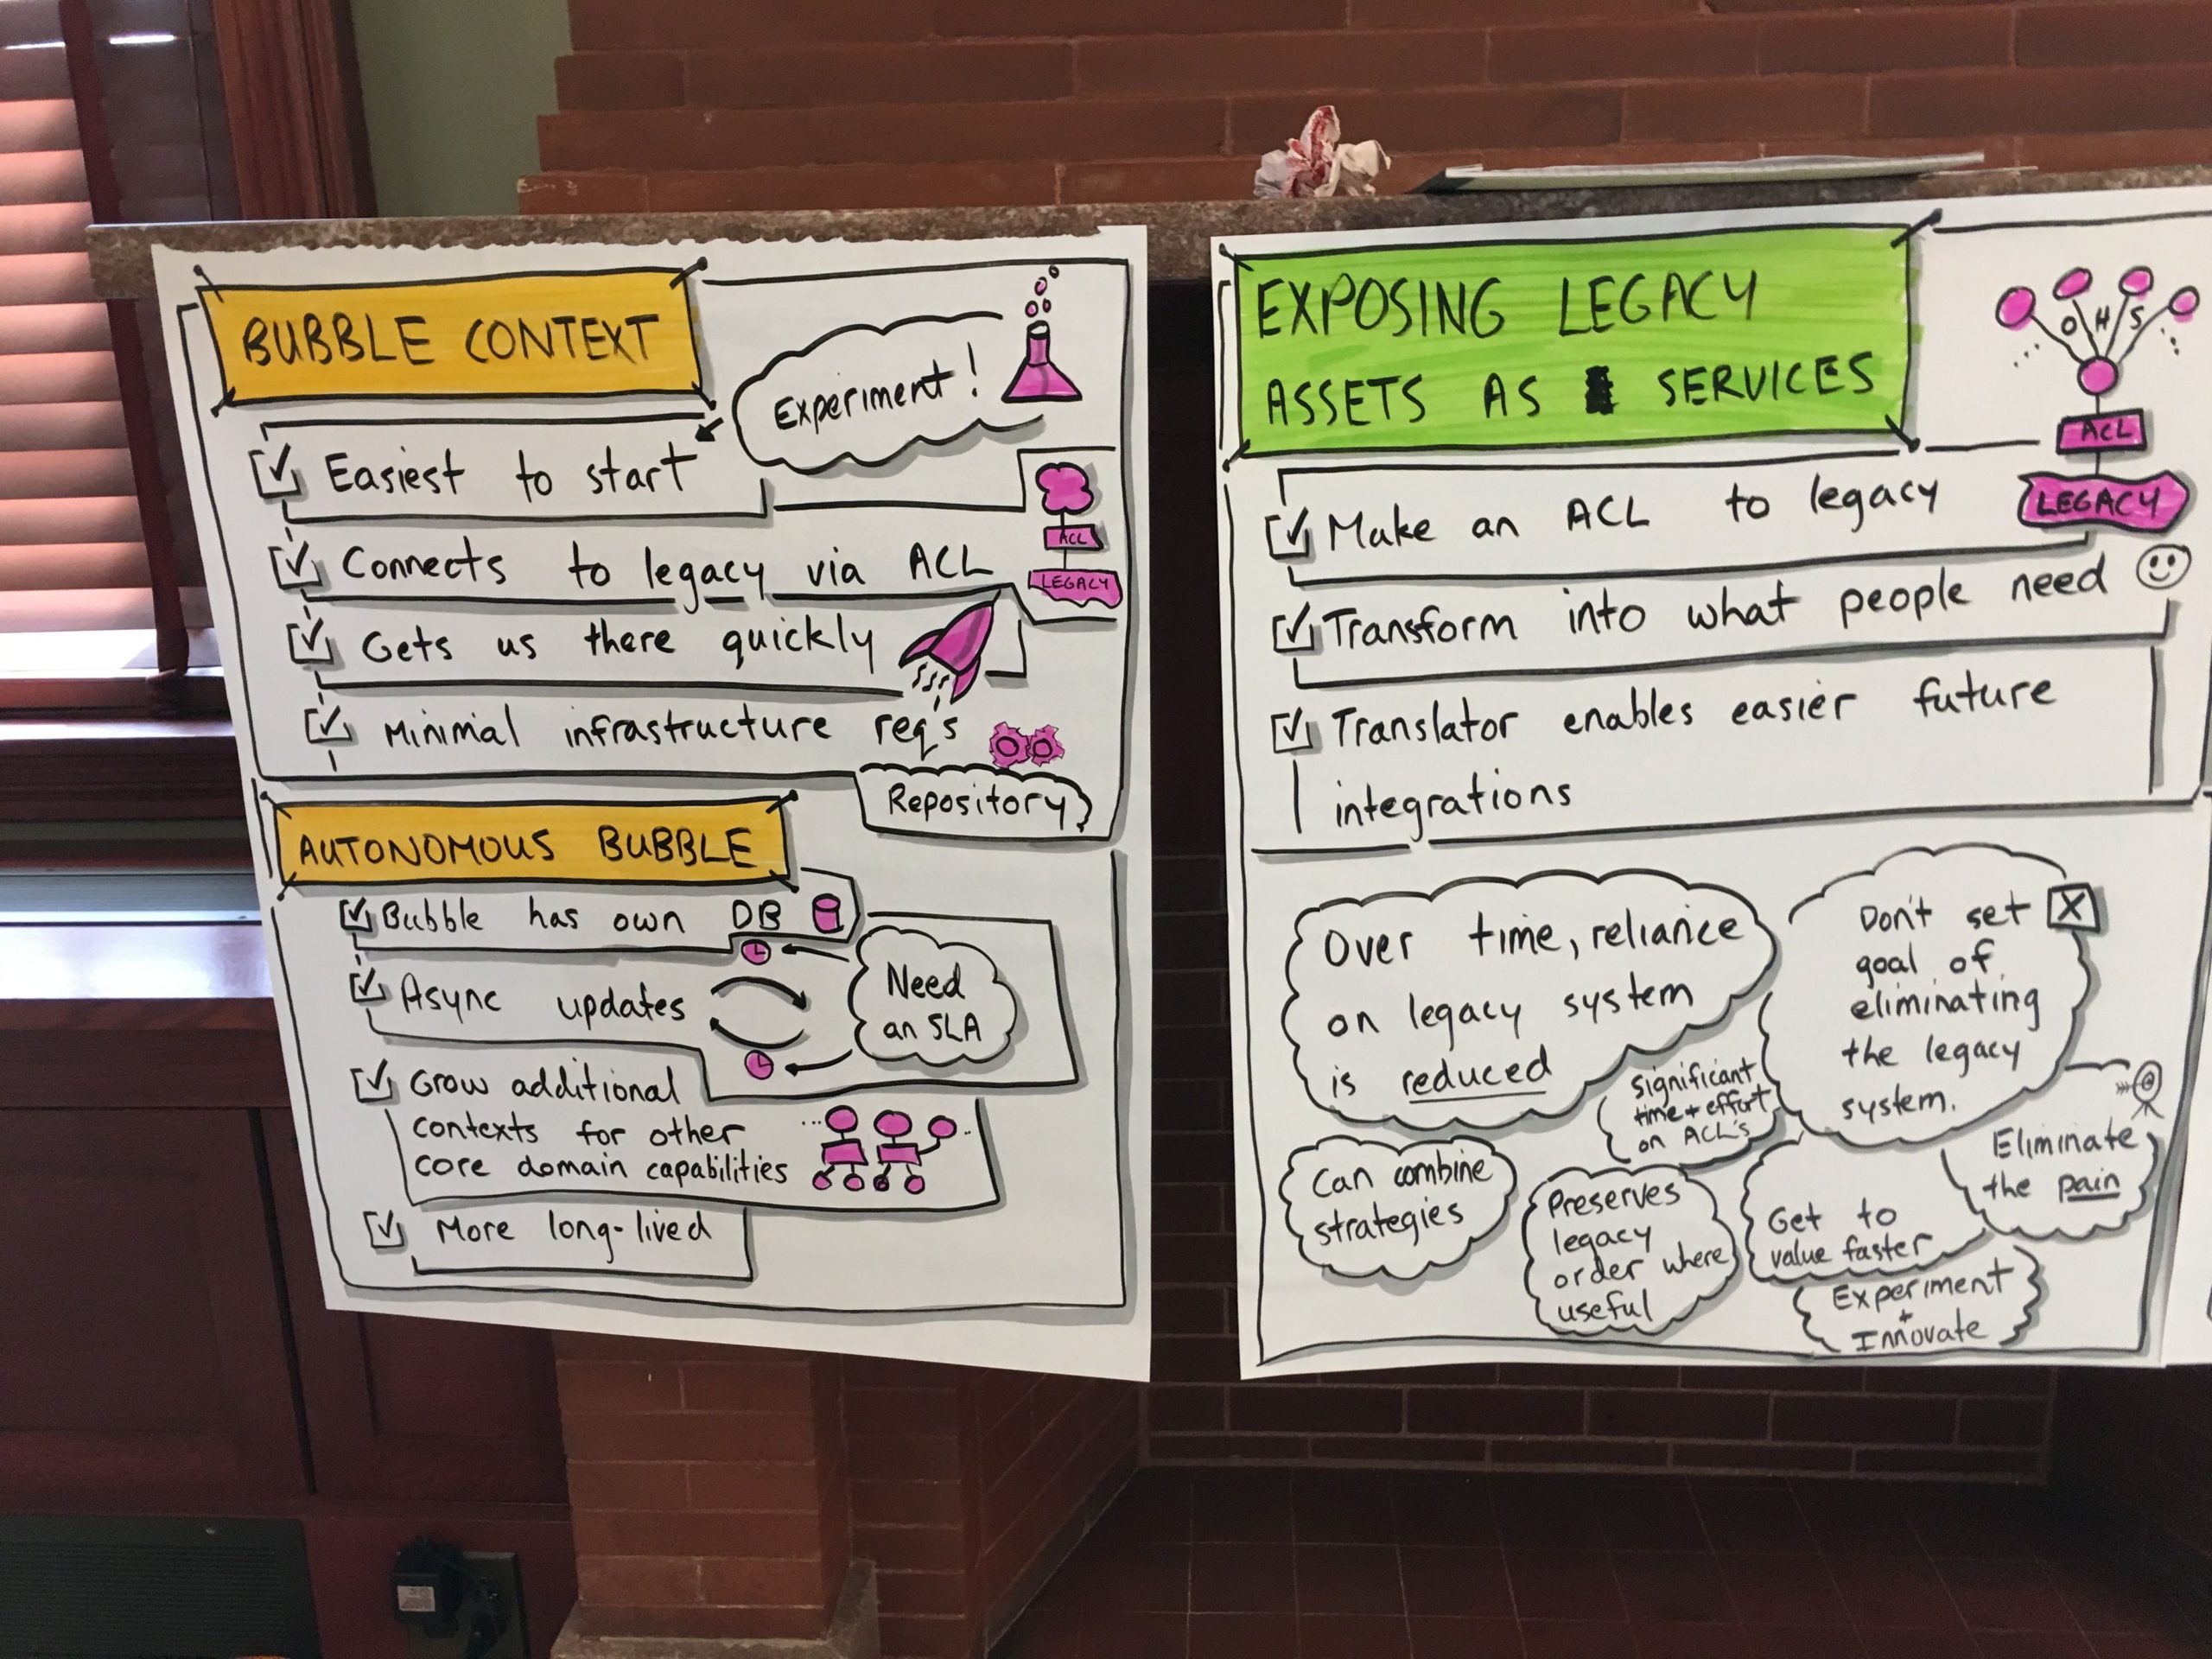 BUBBLE CONTEXT
Experiment!
Easiest to start
Connects to legacy via ACL
ACL
LEGACY
Gets us there quickly
Minimal infrastructure req's
Repository
AUTONOMOUS BUBBLE
Bubble has own DB
Async updates
Need
an SLA
Grow additional
contexts for other
core domain capabilities
More long-lived
EXPOSING LEGACY
ASSETS AS SERVICES
O H S
ACL
LEGACY
Make an ACL to legacy
Transform into what people need
Translator enables easier future
integrations
Over time, reliance
on legacy system
is reduced
Don't set
goal of
eliminating
the legacy
system.
significant
time + effort
on ACL's
Eliminate
the pain
Can combine
strategies
Preserves
legacy
order where
useful
Get to
value faster
Experiment
+
Innovate